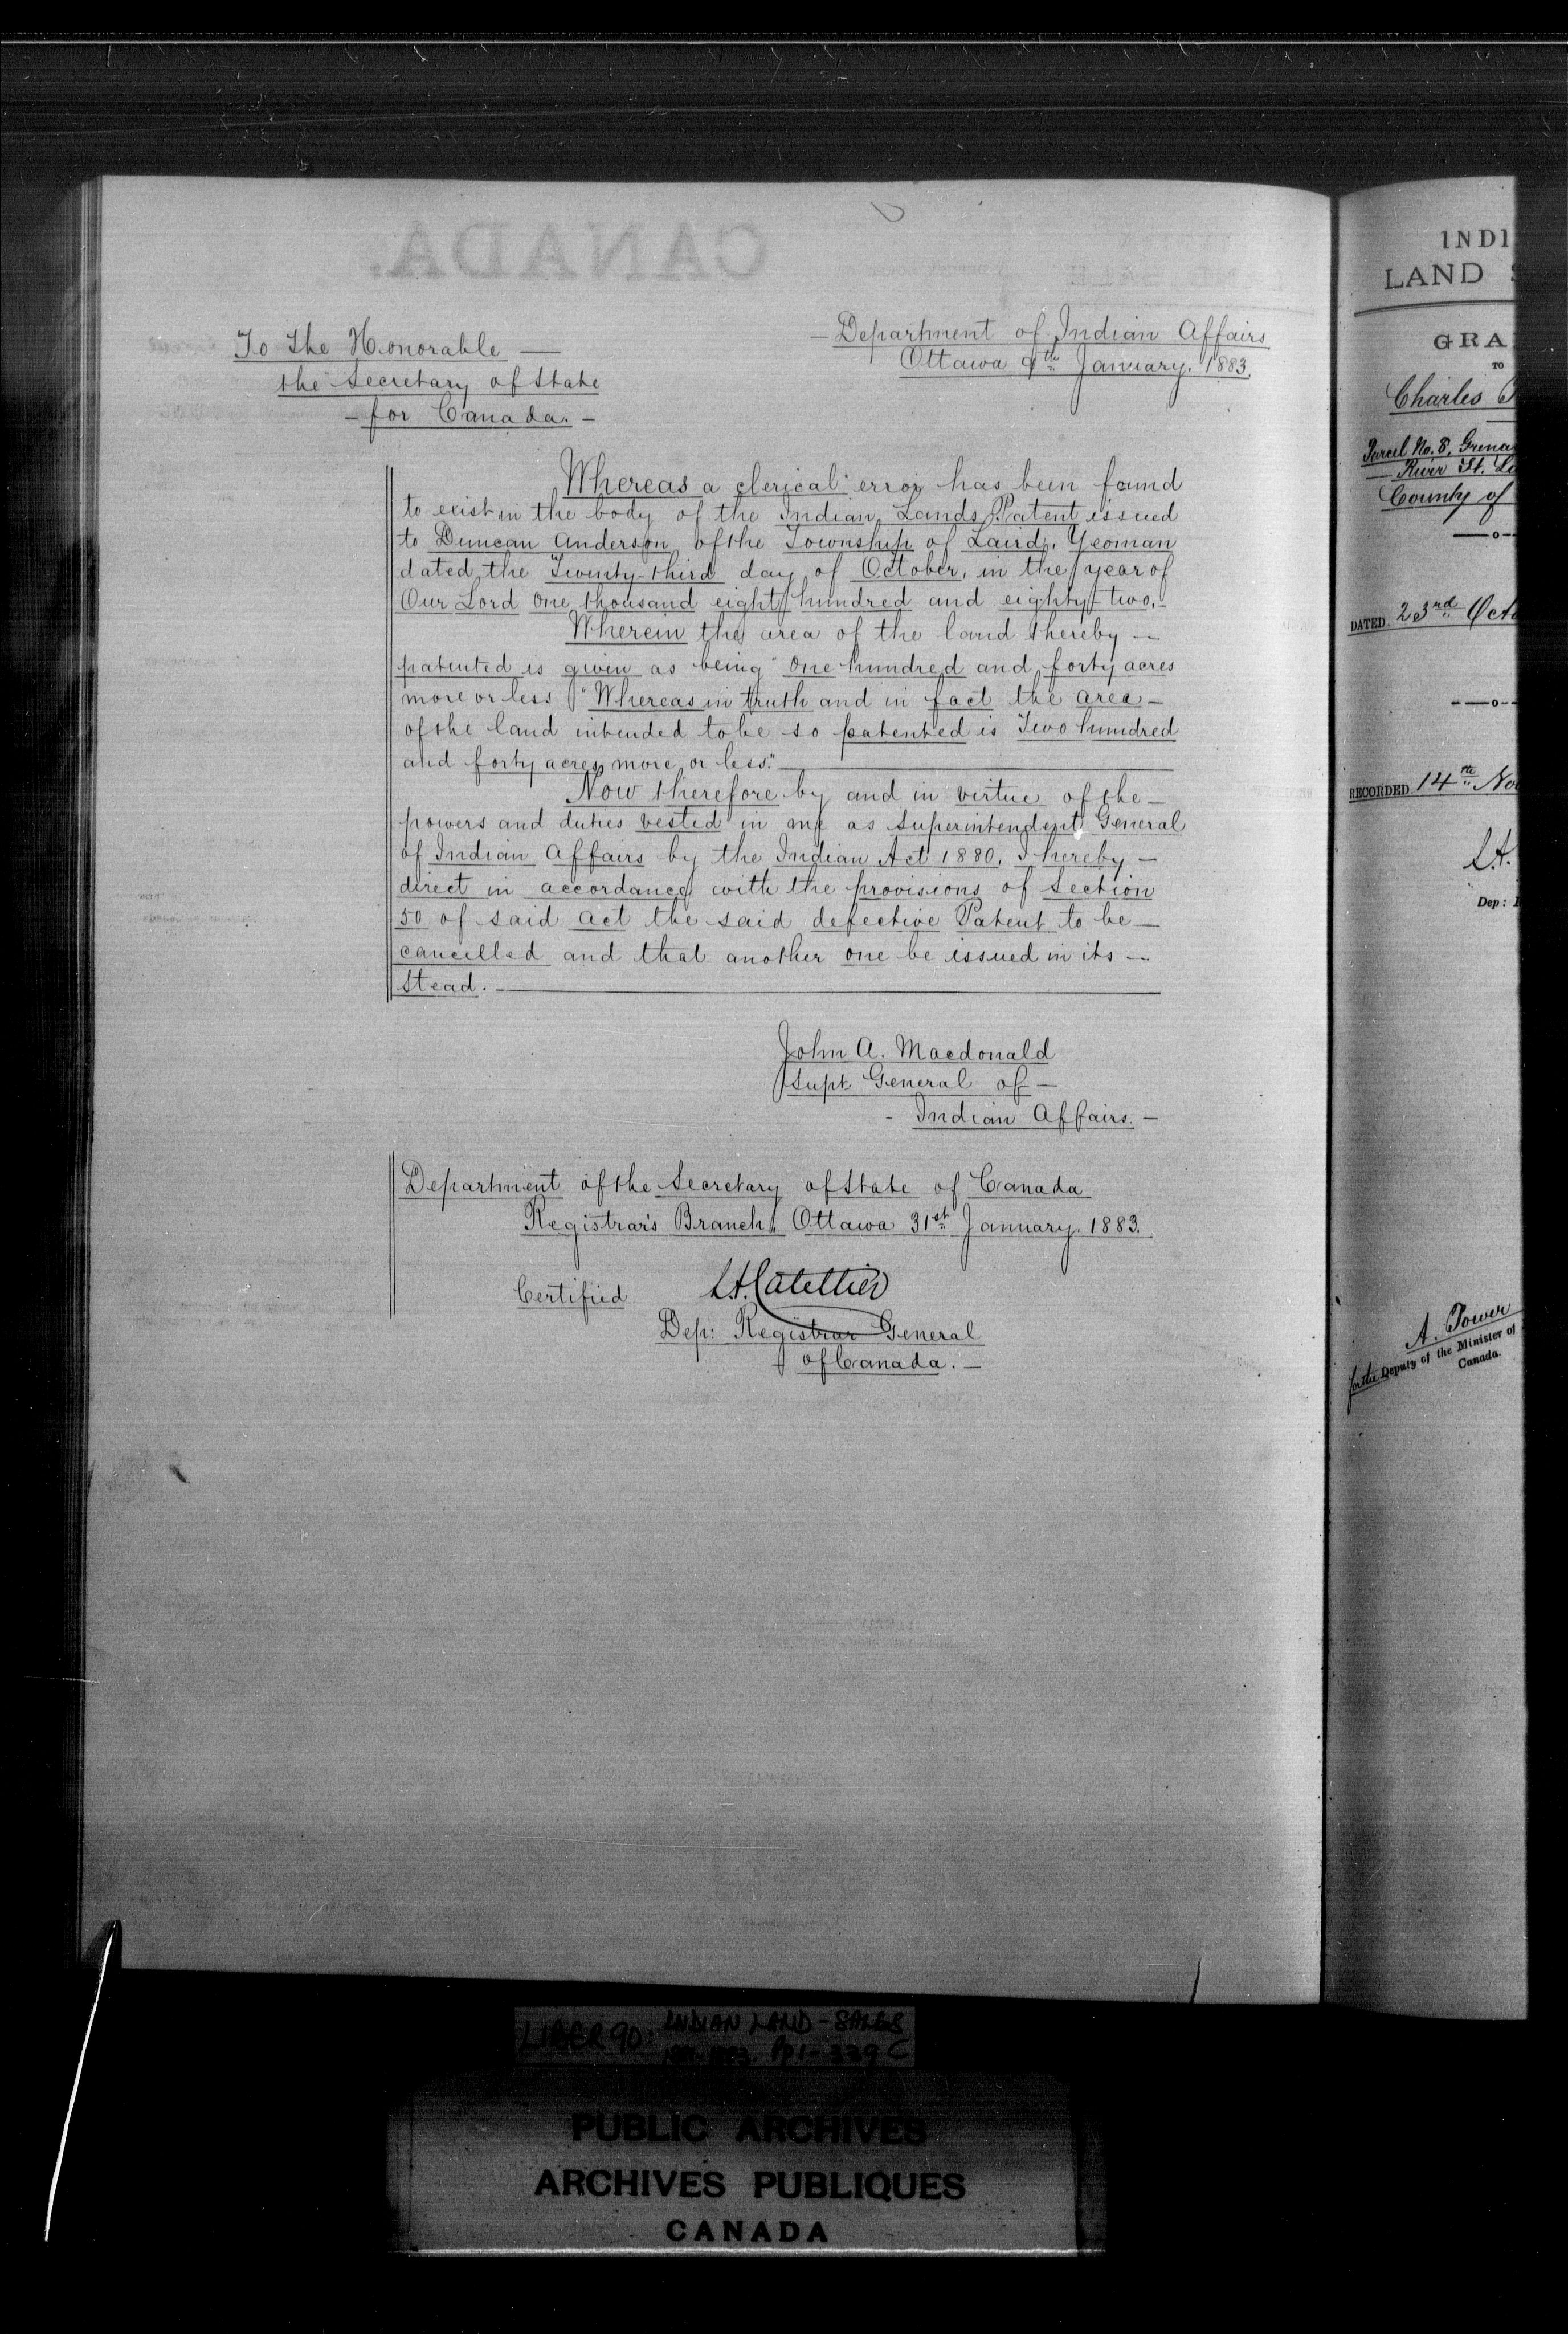 Department of Indian Affairs
Ottawa 9th January. 1883.
To the Honorable
the Secretary of State
for Canada.
Whereas a clerical error has been found
to exist in the body of the Indian Lands Patent issued
to Duncan Anderson of the Township of Laird, Yeoman
dated the Twenty-third day of October, in the year of
Our Lord One thousand eight hundred and eighty-two,
Wherein the area of the land thereby
patented is given as being "One hundred and forty acres
more or less" Whereas in truth and in fact the area
of the land intended to be so patented is Two hundred
and forty acres more or less."
Now therefore by and in virtue of the
powers and duties vested in me as Superintendent General
of Indian Affairs by the Indian Act 1880, I hereby
direct in accordance with the provisions of Section
50 of said Act the said defective Patent to be
cancelled and that another one be issued in its
stead.
John A. Macdonald
Supt General of
Indian Affairs.
Department of the Secretary of State of Canada
Registrar's Branch, Ottawa 31st January. 1883.
Certified L.A. Catellier
Dep: Registrar General
of Canada.
CANADA.
INDI
LAND S
GRA
TO
Charles
Parcel No. 8, Grena
River St. La
County of
DATED 23rd Octo
RECORDED 14th Nov
L.A.
Dep:
A. Power
for the Deputy of the Minister of
Canada.
LIBER 90: INDIAN LAND - SALES
pp 1-339 C
PUBLIC ARCHIVES
ARCHIVES PUBLIQUES
CANADA